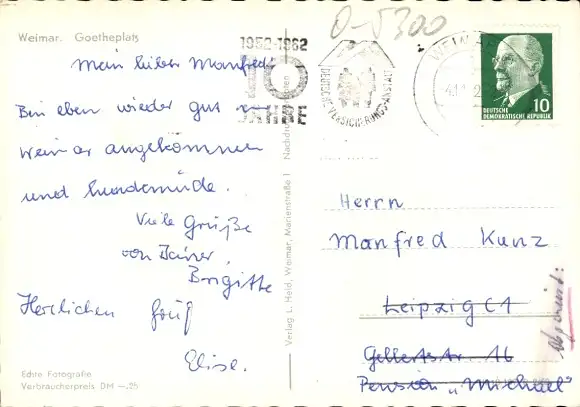 Weimar. Goetheplatz
Mein lieber Manfred!
Bin eben wieder gut in
Weimar angekommen
und hundemüde.
Viele Grüße
von Deiner
Brigitte
Herzlichen Gruß
Elise.
Echte Fotografie
Verbraucherpreis DM —.25
Verlag L. Held, Weimar, Marienstraße 1
1952-1962
10
JAHRE
DEUTSCHE VERSICHERUNGS-ANSTALT
WEIMAR
10
DEUTSCHE
DEMOKRATISCHE REPUBLIK
Herrn
Manfred Kunz
Leipzig C1
Gellertstr. 16
Pension „Michael"